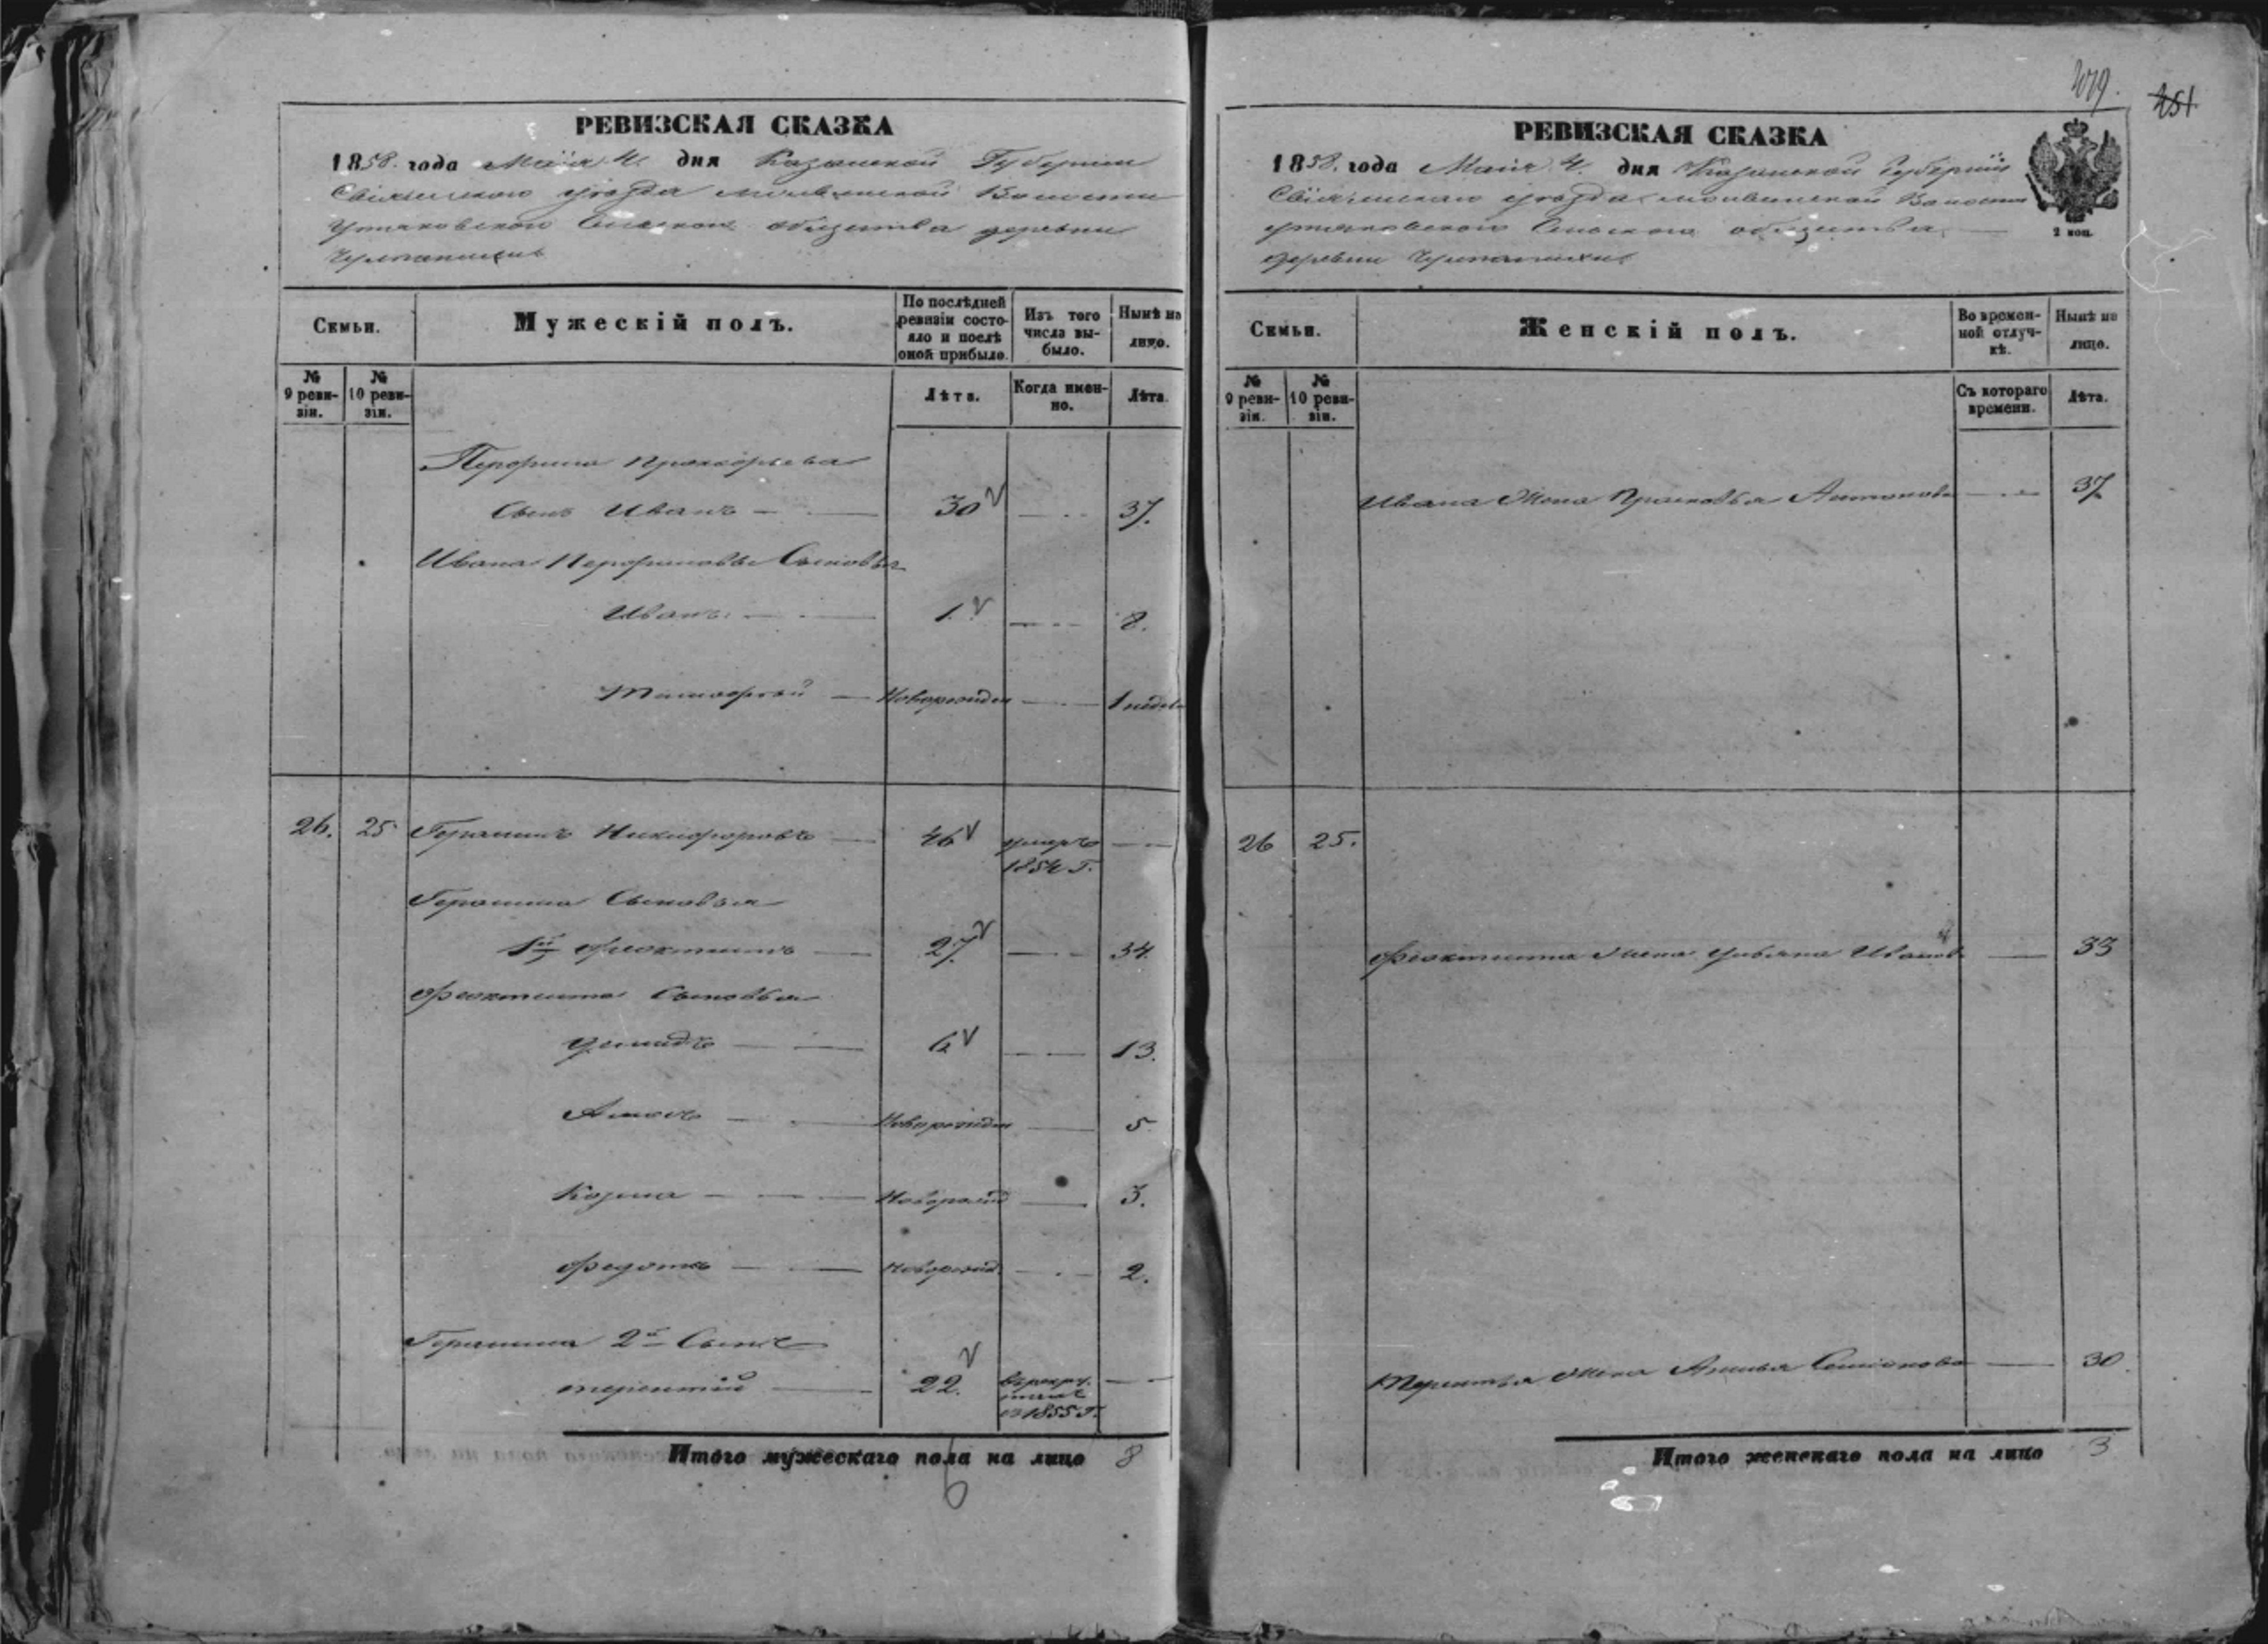 РЕВИЗСКАЯ СКАЗКА
1858. года Маія 4. дня Казанской Губерніи
Свіяжскаго уѣзда Волости
Сельскаго общества деревни
Семьи.
Мужескій полъ.
По послѣдней ревизіи состояло и послѣ оной прибыло.
Изъ того числа выбыло.
Нынѣ на лицо.
№ 9 ревизіи.
№ 10 ревизіи.
Лѣта.
Когда именно.
Лѣта.
Прокофьева
Сынъ Иванъ — 30 — 37.
Ивана Сыновья
Иванъ — 1. — 8.
Тимофей — Новорожден — 1 недел
26. 25 Герасимъ Никифоровъ — 46 умеръ —
1854 г.
Герасима Сыновья
1й Феоктистъ — 27. — 34.
Феоктиста Сыновья
— 6 — 13.
— Новорожден — 5
Козма — Новорожд — 3.
Федотъ — Новорожд. — 2.
Герасима 2й Сынъ
терентій — 22. въ рекрутахъ —
съ 1855 г.
Итого мужескаго пола на лицо 8
6
479.
251
РЕВИЗСКАЯ СКАЗКА
1858. года Маія 4. дня Казанской Губерніи
Свіяжскаго уѣзда Волости
Сельскаго общества
деревни
2 коп.
Семьи.
Женскій полъ.
Во временной отлучкѣ.
Нынѣ на лицо.
№ 9 ревизіи.
№ 10 ревизіи.
Съ котораго времени.
Лѣта.
Ивана Жена Прасковья Антонова — 37
26 25.
Феоктиста Жена Ульяна Иванова — 33
Терентья Жена Семіонова — 30.
Итого женскаго пола на лицо 3